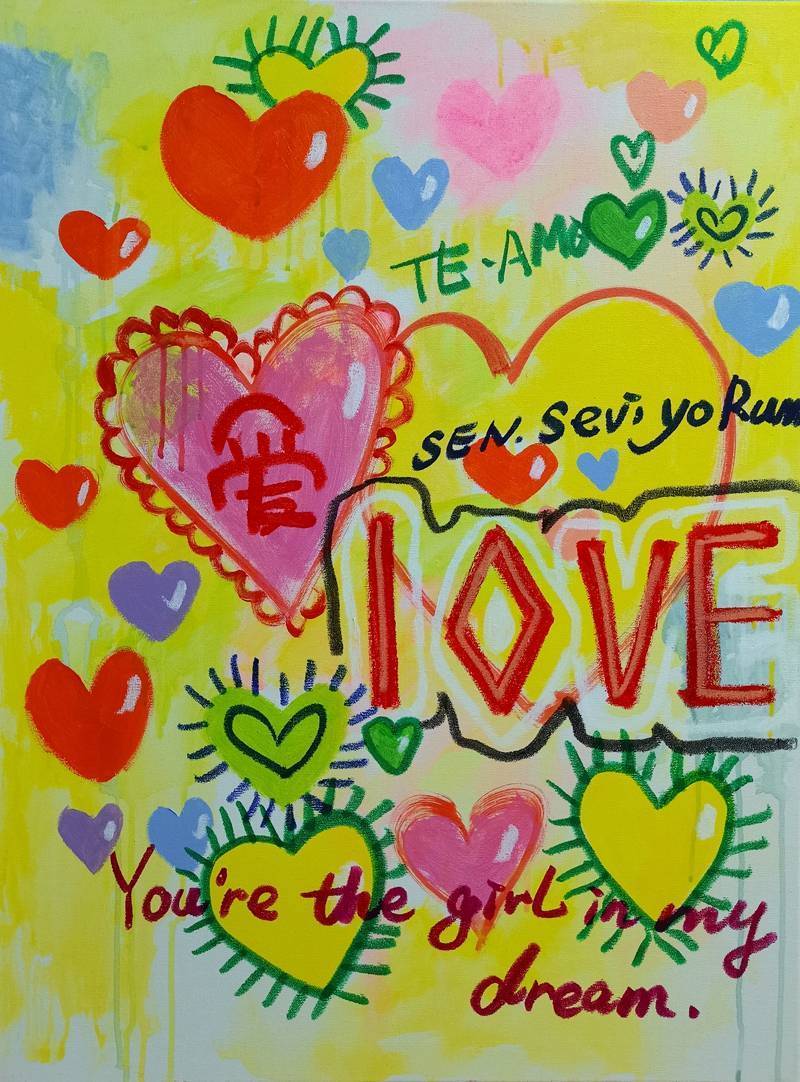 TE-AMO
SEN. SeviyoRum
爱
LOVE
You're the girl in my
dream.